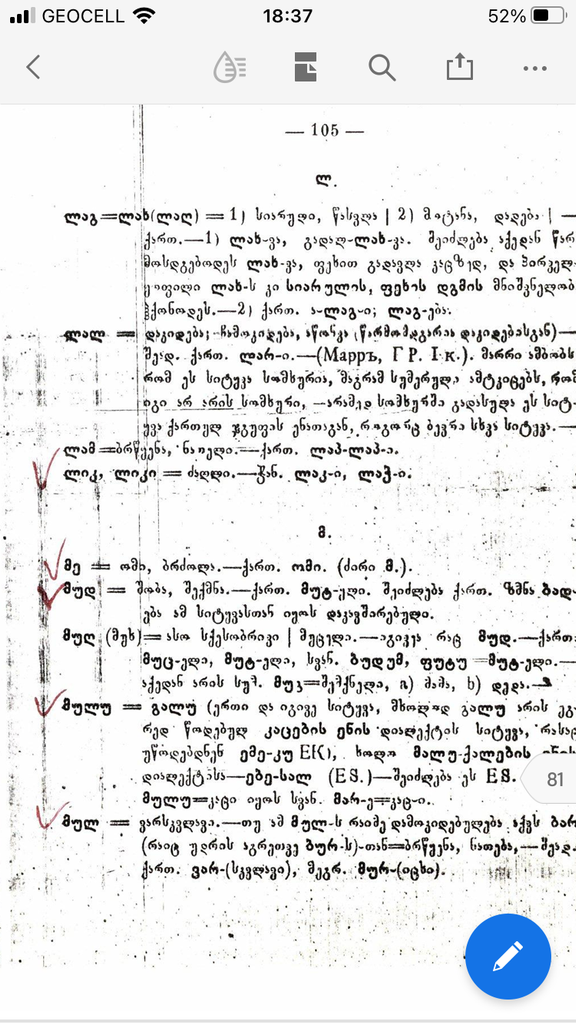 GEOCELL 18:37 52%
— 105 —
ლ.
ლაგ=ლახ(ლაღ) = 1) სიარული, წასვლა | 2) მოტანა, დადება | —
ქართ.—1) ლახ-ვა, გადალ-ლახ-ვა. შეიძლება აქედან წარ
მოსდგებოდეს ლახ-ვა, ფეხით გადავლა კაცზედ, და პირველ
ყოფილი ლახ-ს კი სიარულის, ფეხის დგმის მნიშვნელობ
ჰქონოდეს.—2) ქართ. ა-ლაგ-ი; ლაგ-ება.
ლალ = დაკიდება; ჩამოკიდება, აწონვა (წარმომდგარია დაკიდებასგან)—
შეად. ქართ. ლარ-ი.—(Марръ, ГР. I к.). მარრი ამბობს
რომ ეს სიტყვა სომხურია, მაგრამ სუმერული ამტკიცებს, რომ
იგი არ არის სომხური, —არამედ სომხურში გადასულა ეს სიტ-
ყვა ქართულ ჯგუფის ენათაგან, როგორც ბევრი სხვა სიტყვა.—
ლამ=ბრწყენა, ნათელი.—ქართ. ლაპ-ლაპ-ი.
ლიკ, ლიკი = ძაღლი.—ჭან. ლაკ-ი, ლაჭ-ი.
მ.
მე = ომი, ბრძოლა.—ქართ. ომი. (ძირი მ.).
მუდ = შობა, შექმნა.—ქართ. მუტ-ელი. შეიძლება ქართ. ზმნა ბად-
ება ამ სიტყვასთან იყოს დაკავშირებული.
მუღ (მუხ)= ასო სქესობრივი | მუცელი.—იგივეა რაც მუდ.—ქართ.
მუც-ელი, მუტ-ელი, სვან. ბუდუმ, ფუტუ=მუტ-ელი.—
აქედან არის სუმ. მუჯ=შემქნელი, a) მამა, b) დედა.—
მულუ = გალუ (ერთი და იგივე სიტყვა, მხოლოდ გალუ არის ეგ
რედ წოდებულ კაცების ენის დიალექტის სიტყვა, რასაც
უწოდებდნენ ემე-კუ EK), ხოლო მალუ-ქალების ენის
დიალექტისა—ებე-სალ (ES.)—შეიძლება ეს ES.
81
მულუ=კაცი იყოს სვან. მარ-ე=კაც-ი.
მულ = ვარსკვლავი.—თუ ამ მულ-ს რაიმე დამოკიდებულება აქვს ბარ
(რაიც უდრის აგრეთვე ბურ-ს)-თან=ბრწყენა, ნათება,—შეად.
ქართ. ვარ-(სკვლავი), მეგრ. მურ-(იცხი).